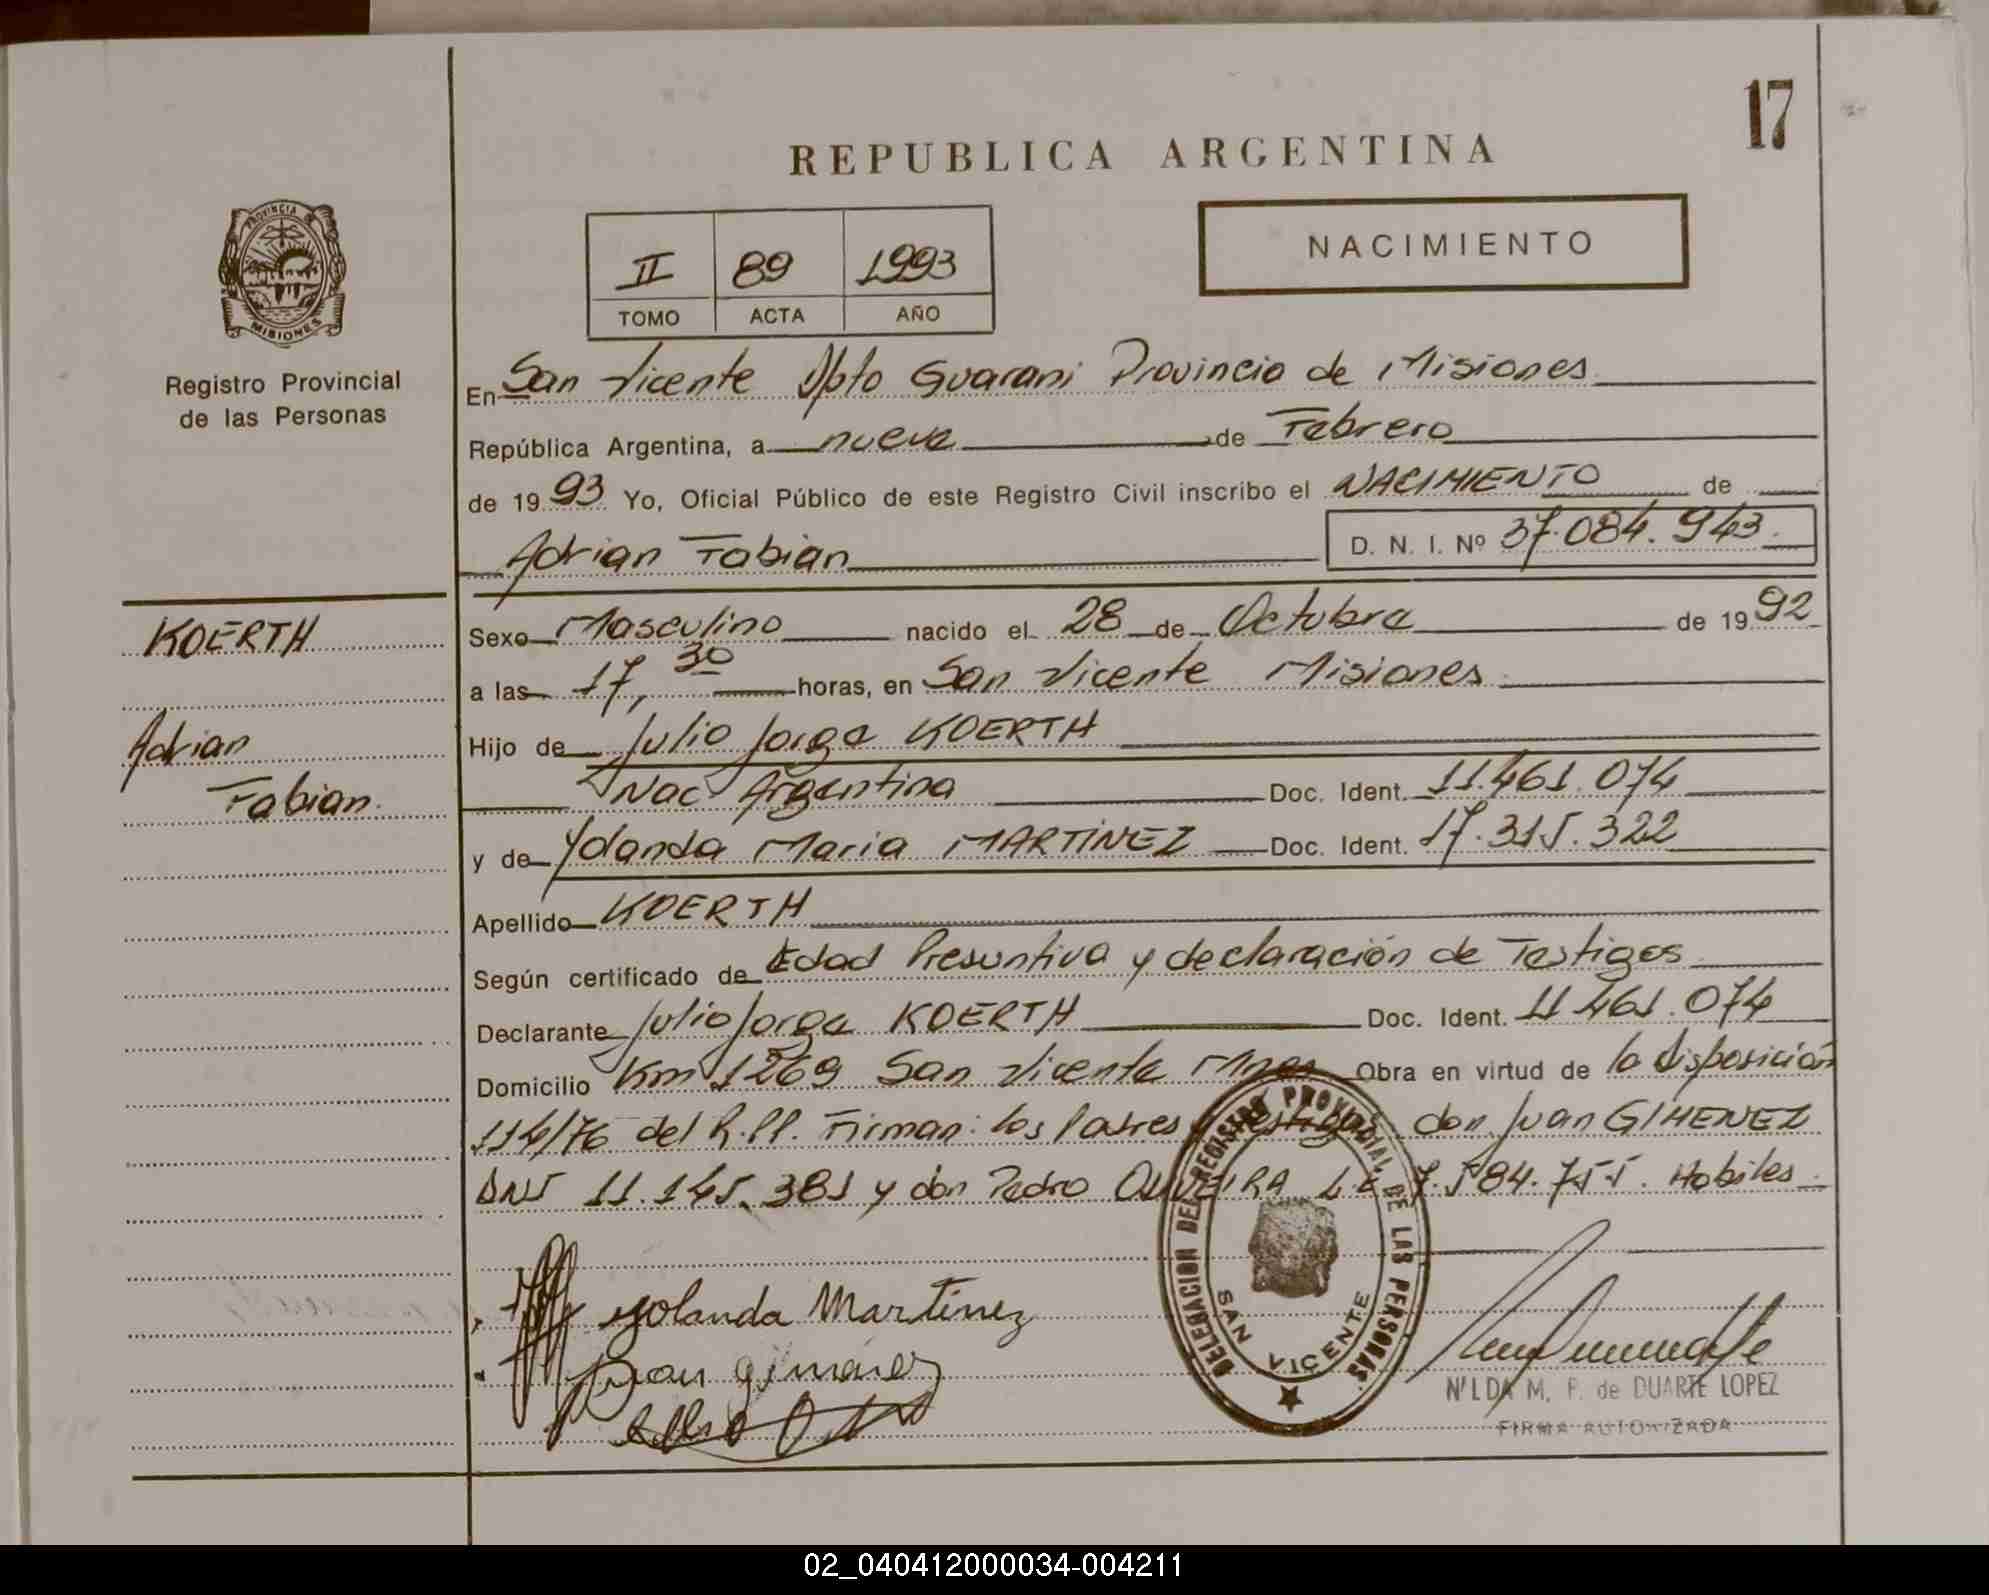 17
REPUBLICA ARGENTINA
PROVINCIA DE
MISIONES
Registro Provincial
de las Personas
NACIMIENTO
II 89 1993
TOMO ACTA AÑO
En San Vicente Dpto Guarani Provincia de Misiones
República Argentina, a nueve de Febrero
de 1993 Yo, Oficial Público de este Registro Civil inscribo el NACIMIENTO de
Adrian Fabian D. N. I. Nº 37.084.943.
KOERTH
Adrian
Fabian.
Sexo Masculino nacido el 28 de Octubre de 1992
a las 17,30 horas, en San Vicente Misiones
Hijo de Julio Jorge KOERTH
Nac Argentina Doc. Ident. 11.461.074
y de Yolanda Maria MARTINEZ Doc. Ident. 17.315.322
Apellido KOERTH
Según certificado de Edad Presuntiva y declaración de Testigos
Declarante Julio Jorge KOERTH Doc. Ident. 11.461.074
Domicilio Km 1269 San Vicente Mnes Obra en virtud de la disposición
114/76 del R.PP. Firman: los Padres y testigos don Juan GIMENEZ
DNI 11.145.381 y don Pedro OLIVEIRA L.E 7.584.755. Habiles
Yolanda Martinez
Juan Gimenez
DELEGACION DEL REGISTRO PROVINCIAL DE LAS PERSONAS
SAN VICENTE
NILDA M. P. de DUARTE LOPEZ
FIRMA AUTORIZADA
02_040412000034-004211